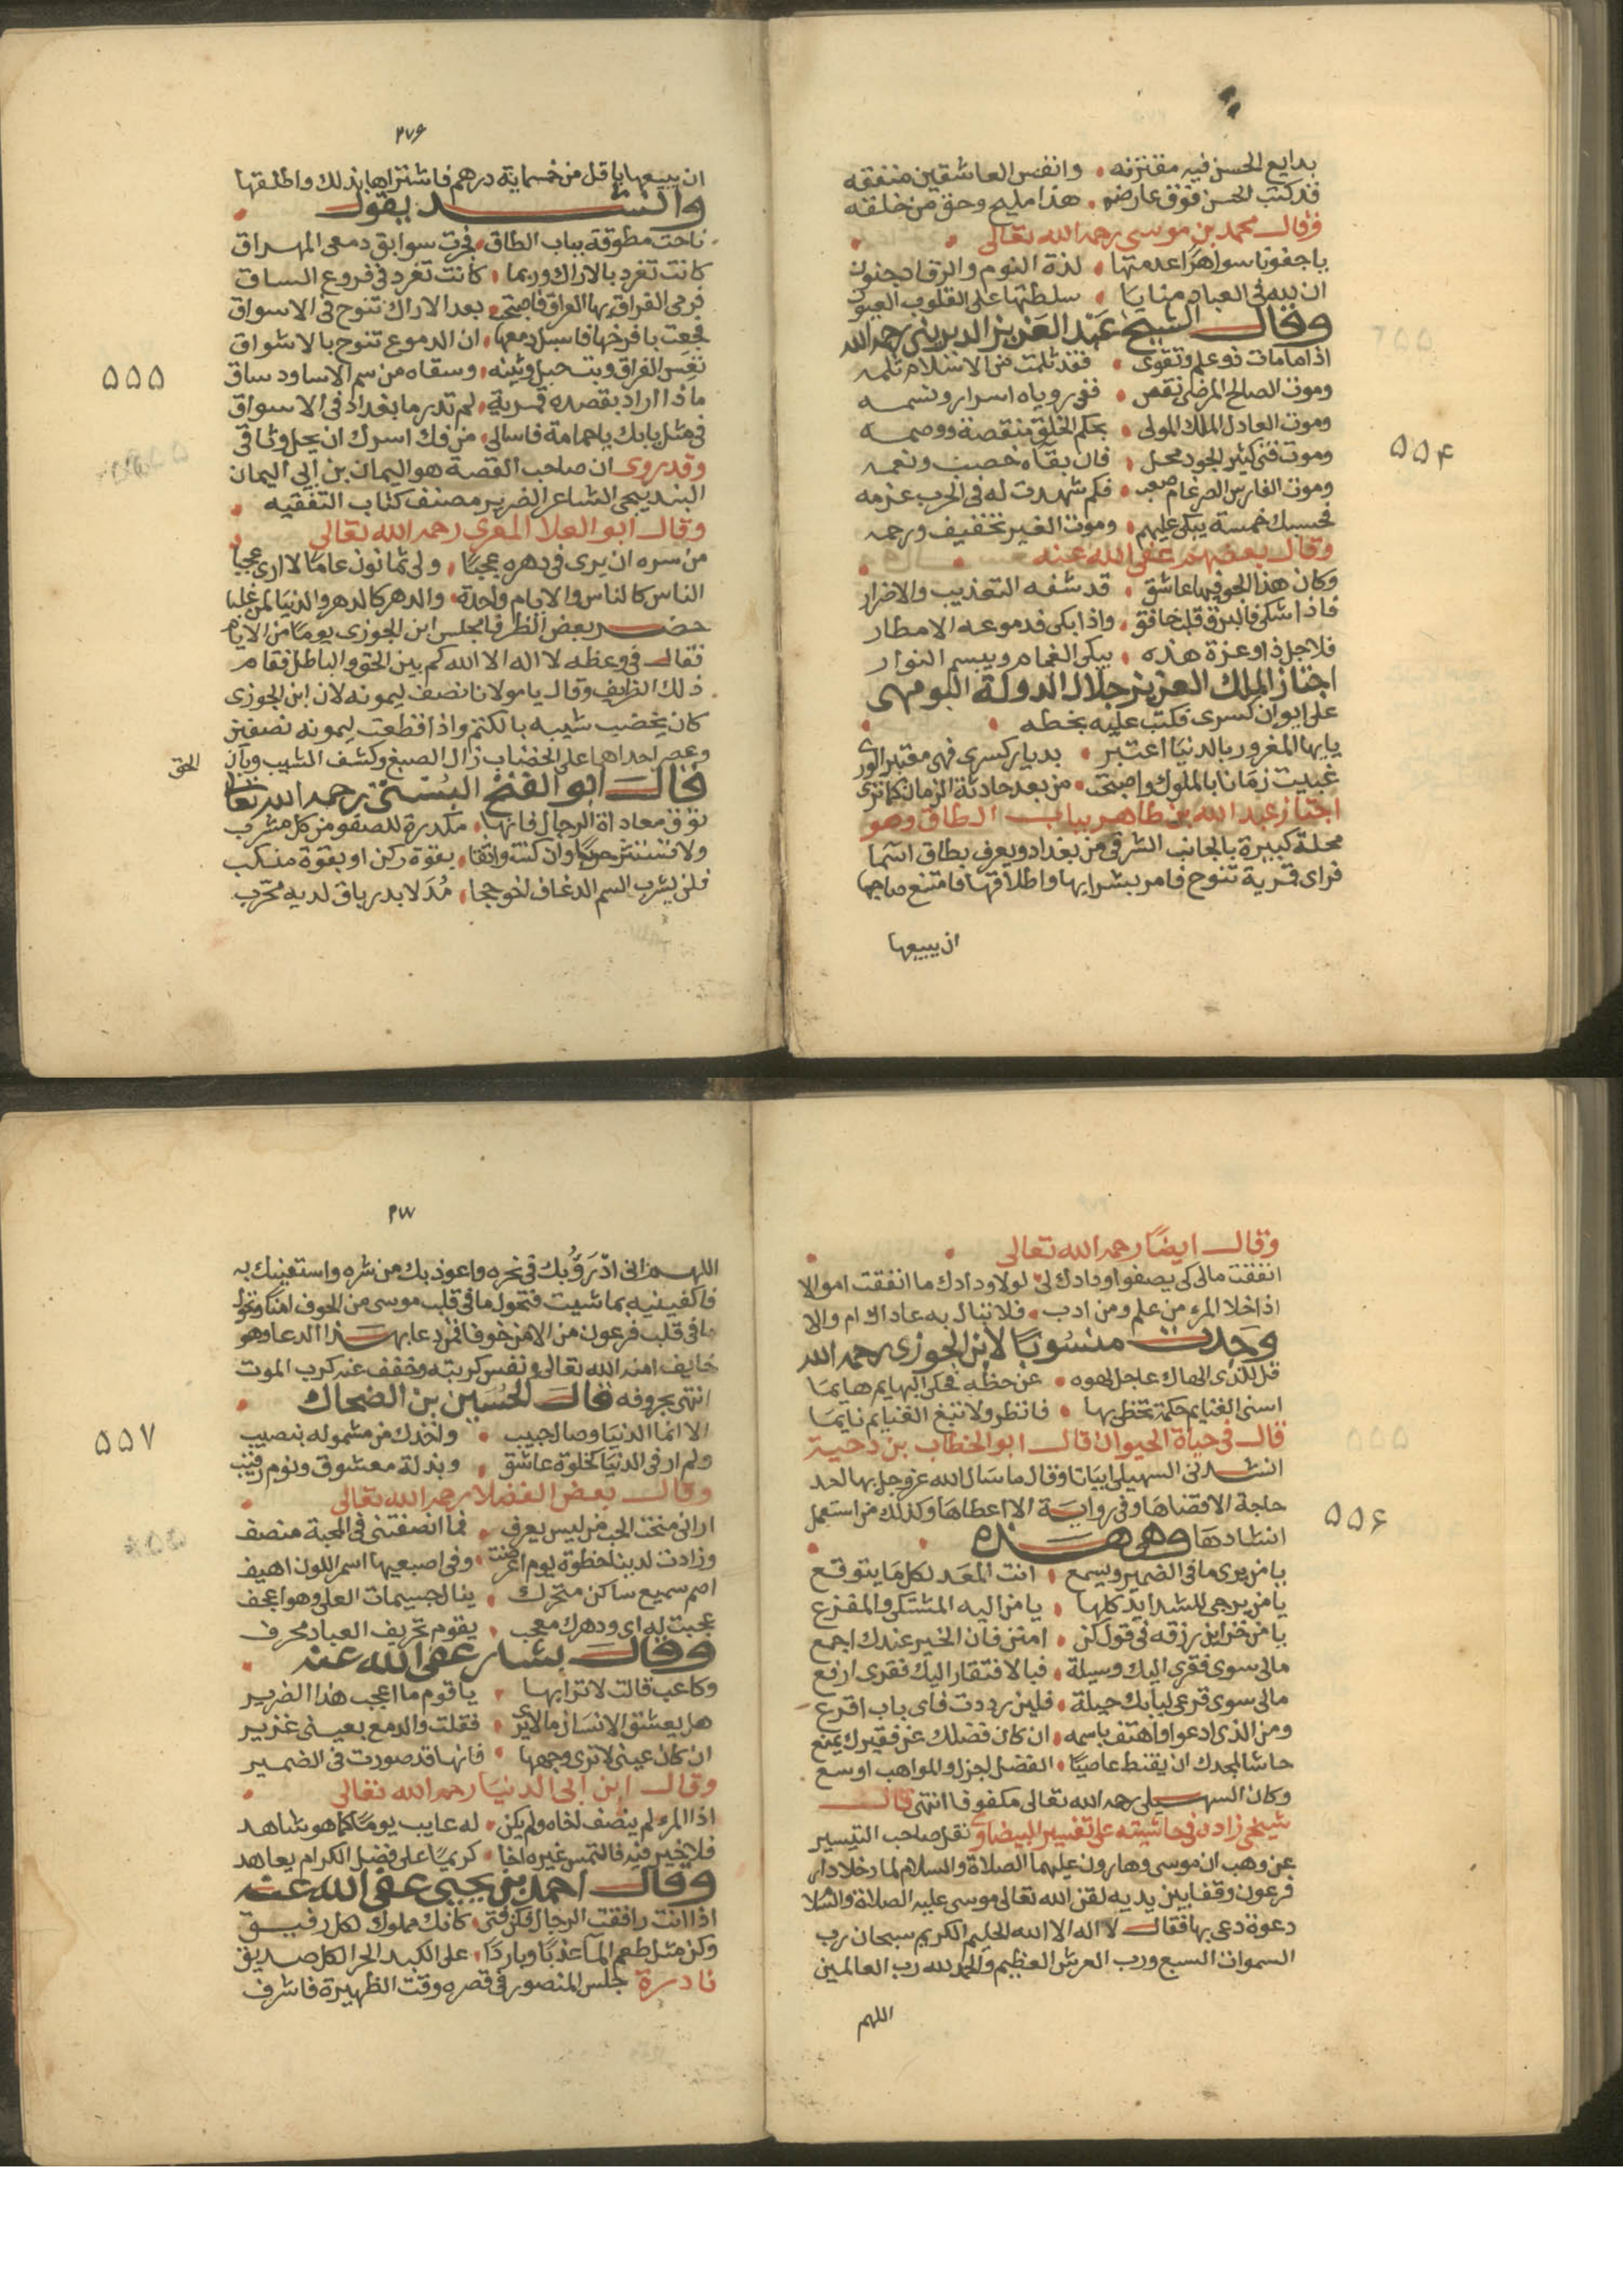 بدايع الحسن فيه مفترقه وانفس العاشقين متفقه
قد كتب الحسن فوق عارضه هذا مليح وحق من خلقه
وقال محمد بن موسى رحمه الله تعالى
يا جفونا سواهرا عدمتها لذة النوم والرقاد جفون
ان لله فى العباد منايا سلطتها على القلوب العيون
وقال الشيخ عبد العزيز الديرينى رحمه الله
اذا ما مات ذو علم وتقوى فقد ثلمت من الاسلام ثلمه
وموت الصالح المرضى نقص ففى روياه اسرار ونسمه
وموت العادل الملك المولى بحكم الخلق منقصة ووصمه
وموت فتى كثير الجود محل فان بقاه خصب ونعمه
وموت الفارس الضرغام صعب فكم شهدت له فى الحرب عزمه
فحسبك خمسة يبكى عليهم وموت الغير تخفيف ورحمه
وقال بعضهم عفى الله عنه
وكان هذا الجو فيها عاشق قد شفه التعذيب والاضرار
فاذا شكى فالبرق قلب خافق واذا بكى فدموعه الامطار
فلاجل ذا وعزة هذه يبكى الغمام ويبسم النوار
اجتاز الملك العزيز جلال الدولة البويهى
على ايوان كسرى فكتب عليه بخطه
يا يها المغرور بالدنيا اعتبر بديار كسرى فهى معتبر الورى
غنيت زمانا بالملوك واصبحت من بعد حادثة الزمان كما ترى
اجتاز عبد الله بن طاهر بباب الطاق وهو
محلة كبيرة بالجانب الشرقى من بغداد ويعرف بطاق اسما
فراى قمرية تنوح فامر بشرايها واطلاقها فامتنع صاحبها
ان يبيعها
٢٧٦
ان يبيعها باقل من خمسماية درهم فاشتراها بذلك واطلقها
وانشد يقول
ناحت مطوقة بباب الطاق فجرت سوابق دمعى المهراق
كانت تغرد بالاراك وربما كانت تغرد فى فروع الساق
فرمى الفراق بها العراق فاصبحت بعد الاراك تنوح فى الاسواق
فجعت بافرخها فاسبل دمعها ان الدموع تنوح بالاشواق
تعس الفراق وبت حبل وتينه وسقاه من سم الاساود ساق
ماذا اراد بقصده قمرية لم تدر ما بغداد فى الاسواق
فى مثل بابك يا حمامة فاسالى من فك اسرك ان يحل وثاقى
وقد روى ان صاحب القصة هو اليمان بن ابى اليمان
البنديجى الشاعر الضرير مصنف كتاب التفقيه
وقال ابو العلا المعرى رحمه الله تعالى
من سره ان يرى فى دهره عجبا ولى ثمانون عاما لا ارى عجبا
الناس كالناس والايام واحدة والدهر كالدهر والدنيا لمن غلبا
حضر بعض الظرفا مجلس ابن الجوزى يوما من الايام
فقال فى وعظه لا اله الا الله كم بين الحق والباطل فقام
ذلك الظريف وقال يا مولانا نصف ليمونه لان ابن الجوزى
كان يخضب شيبه بالكتم واذا قطعت ليمونه نصفين
وعصر احداهما على الخضاب زال الصبغ وكشف الشيب وبان الحق
قال ابو الفتح البستى رحمه الله تعالى
توق معاداة الرجال فانها مكدرة للصفو من كل مشرب
ولا تستثر حربا وان كنت واثقا بقوة ركن او بقوة منكب
فلن يشرب السم الذعاف اخو حجا مدلا بدرياق لديه مجرب
٥٥٤
٥٥٥
وقال ايضا رحمه الله تعالى
انفقت مالى كى يصفوا ودادك لى لولا ودادك ما انفقت اموالا
اذا خلا المرء من علم ومن ادب فلا تبال به عاداك ام والا
وجدت منسوبا لابن الجوزى رحمه الله
قل للذى الهاك عاجل لهوه عن حظه فحكى البهايم هايما
اسنى الغنايم حكمة تحظى بها فانظر ولا تبغ الغنايم نايما
قال فى حياة الحيوان قال ابو الخطاب بن دحية
انشدنى السهيلى ابياتا وقال ما سال الله عز وجل بها احد
حاجة الا قضاها وفى رواية الا اعطاها وكذلك من استعمل
انشادها وهى هذه
يا من يرى ما فى الضمير ويسمع انت المعد لكل ما يتوقع
يا من يرجى للشدايد كلها يا من اليه المشتكى والمفزع
يا من خزاين رزقه فى قول كن امنن فان الخير عندك اجمع
مالى سوى فقرى اليك وسيلة فبالافتقار اليك فقرى ارفع
مالى سوى قرعى لبابك حيلة فلين رددت فاى باب اقرع
ومن الذى ادعوا واهتف باسمه ان كان فضلك عن فقيرك يمنع
حاشا لمجدك ان يقنط عاصيا الفضل اجزل والمواهب اوسع
وكان السهيلى رحمه الله تعالى مكفوفا انتهى قال
شيخى زاده فى حاشيته على تفسير البيضاوى نقل صاحب التيسير
عن وهب ان موسى وهارون عليهما الصلاة والسلام لما دخلا دار
فرعون وقفا بين يديه لقن الله تعالى موسى عليه الصلاة والسلا
دعوة دعى بها فقال لا اله الا الله الحليم الكريم سبحان رب
السموات السبع ورب العرش العظيم والحمد لله رب العالمين
اللهم
٢٧٧
اللهم انى ادرؤ بك فى نحره واعوذ بك من شره واستعينك به
فاكفينيه بما شيت فتحول ما فى قلب موسى من الخوف امنا وتحول
ما فى قلب فرعون من الامن خوفا فمن دعا بهذا الدعا وهو
خايف امنه الله تعالى ونفس كربته وخفف عنه كرب الموت
انتهى بحروفه قال الحسين بن الضحاك
الا انما الدنيا وصال حبيب واخذك من مشموله بنصيب
ولم ار فى الدنيا كخلوة عاشق وبذلة معشوق ونوم رقيب
وقال بعض الفضلا رحمه الله تعالى
ارانى منحت الحب من ليس يعرف فما انصفتنى فى المحبة منصف
وزادت لدينا حظوة يوم اعرضت وفى اصبعيها اسمر اللون اهيف
اصم سميع ساكن متحرك ينال جسيمات العلى وهو اعجف
عجبت له اى ودهرك معجب يقوم تحريف العباد محرف
وقال بشار عفى الله عنه
وكاعب قالت لاترابها يا قوم ما اعجب هذا الضرير
هل يعشق الانسان ما لا يرى فقلت والدمع بعينى غزير
ان كان عينى لا ترى وجهها فانها قد صورت فى الضمير
وقال ابن ابى الدنيا رحمه الله تعالى
اذا المرء لم ينصف اخاه ولم يكن له عايب يوما كما هو شاهد
فلا خير فيه فالتمس غيره اخا كريما على فضل الكرام يعاهد
وقال احمد بن يحيى عفى الله عنه
اذا انت رافقت الرجال فكن فتى كانك مملوك لكل رفيق
وكن مثل طعم الما عذبا وباردا على الكبد الحرا لكل صديق
نادرة جلس المنصور فى قصره وقت الظهيرة فاشرف
٥٥٦
٥٥٧